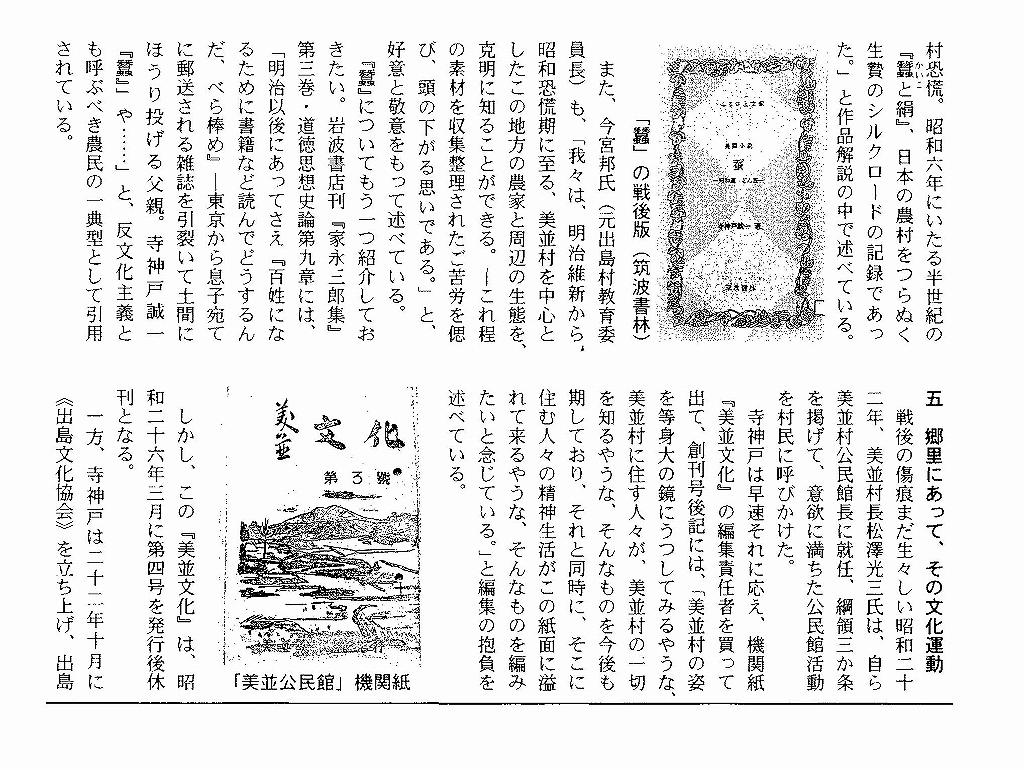 村恐慌。昭和六年にいたる半世紀の
『蠶と絹』、日本の農村をつらぬく
かいこ
生贄のシルクロードの記録であっ
た。」と作品解説の中で述べている。
「蠶」の戦後版（筑波書林）
また、今宮邦氏（元出島村教育委
員長）も、「我々は、明治維新から、
昭和恐慌期に至る、美並村を中心と
したこの地方の農家と周辺の生態を、
克明に知ることができる。―これ程
の素材を収集整理されたご苦労を偲
び、頭の下がる思いである。」と、
好意と敬意をもって述べている。
『蠶』についてもう一つ紹介してお
きたい。岩波書店刊『家永三郎集』
第三巻・道徳思想史論第九章には、
「明治以後にあってさえ『百姓にな
るために書籍など読んでどうするん
だ、べら棒め』―東京から息子宛て
に郵送される雑誌を引裂いて土間に
ほうり投げる父親。寺神戸誠一
『蠶』や……」と、反文化主義と
も呼ぶべき農民の一典型として引用
されている。
五　郷里にあって、その文化運動
戦後の傷痕まだ生々しい昭和二十
二年、美並村長松澤光三氏は、自ら
美並村公民館長に就任、綱領三か条
を掲げて、意欲に満ちた公民館活動
を村民に呼びかけた。
寺神戸は早速それに応え、機関紙
『美並文化』の編集責任者を買って
出て、創刊号後記には、「美並村の姿
を等身大の鏡にうつしてみるやうな、
美並村に住す人々が、美並村の一切
を知るやうな、そんなものを今後も
期しており、それと同時に、そこに
住む人々の精神生活がこの紙面に溢
れて来るやうな、そんなものを編み
たいと念じている。」と編集の抱負を
述べている。
美並文化
第3號
「美並公民館」機関紙
しかし、この『美並文化』は、昭
和二十六年三月に第四号を発行後休
刊となる。
一方、寺神戸は二十二年十月に
《出島文化協会》を立ち上げ、出島